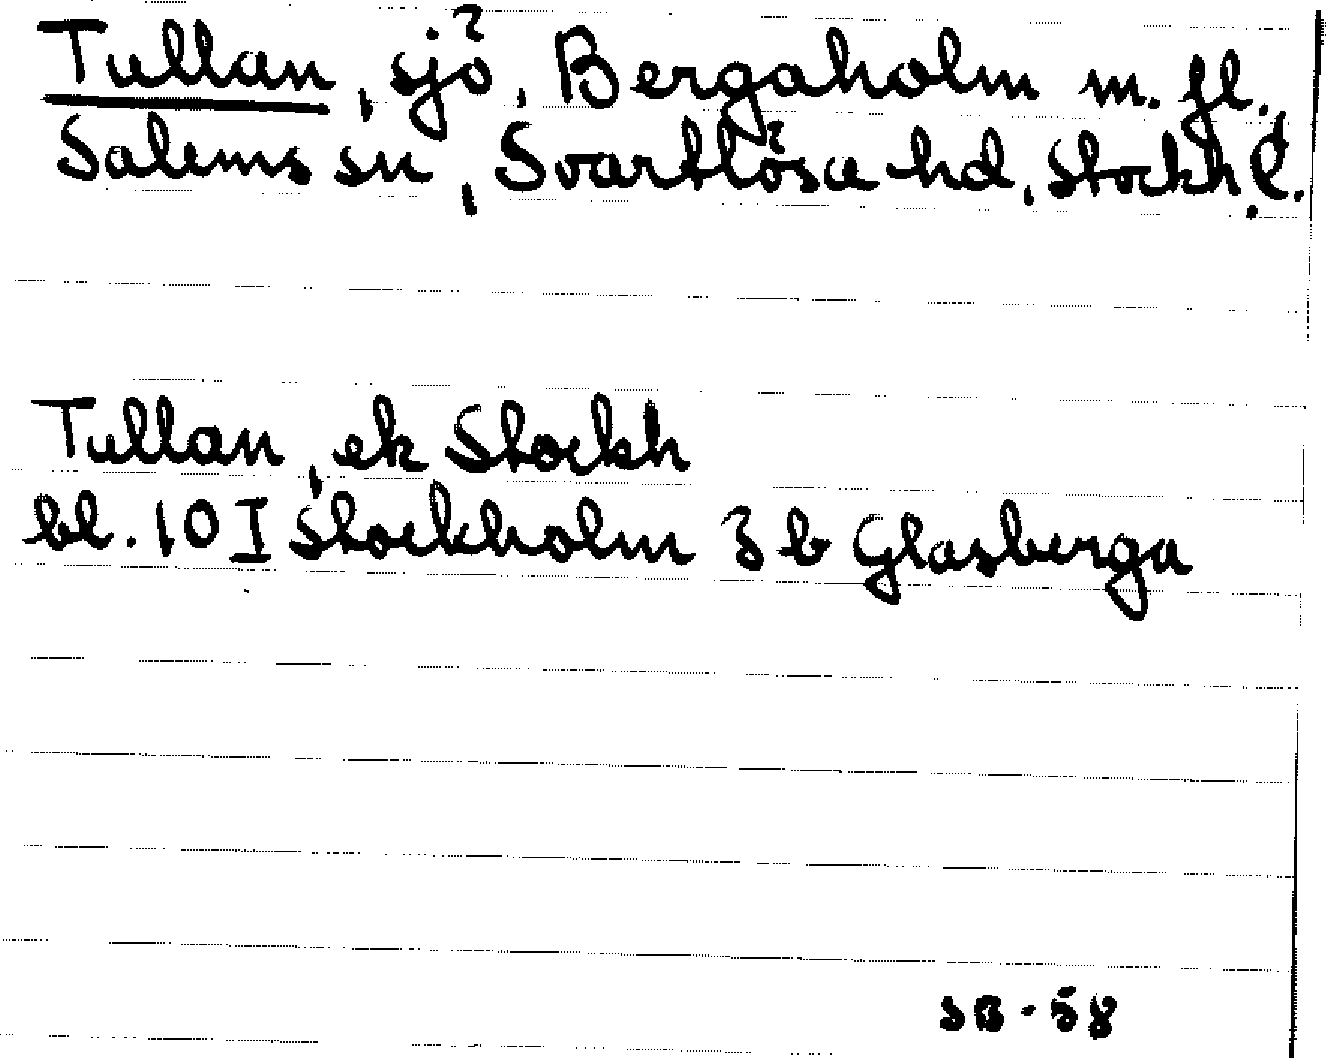 Tullan, sjö, Bergaholm m. fl.
Salems sn, Svartlösa hd, Stockh. l.
Tullan, ek Stockh
bl. 10 I Stockholm 3 b Glasberga
SB-58